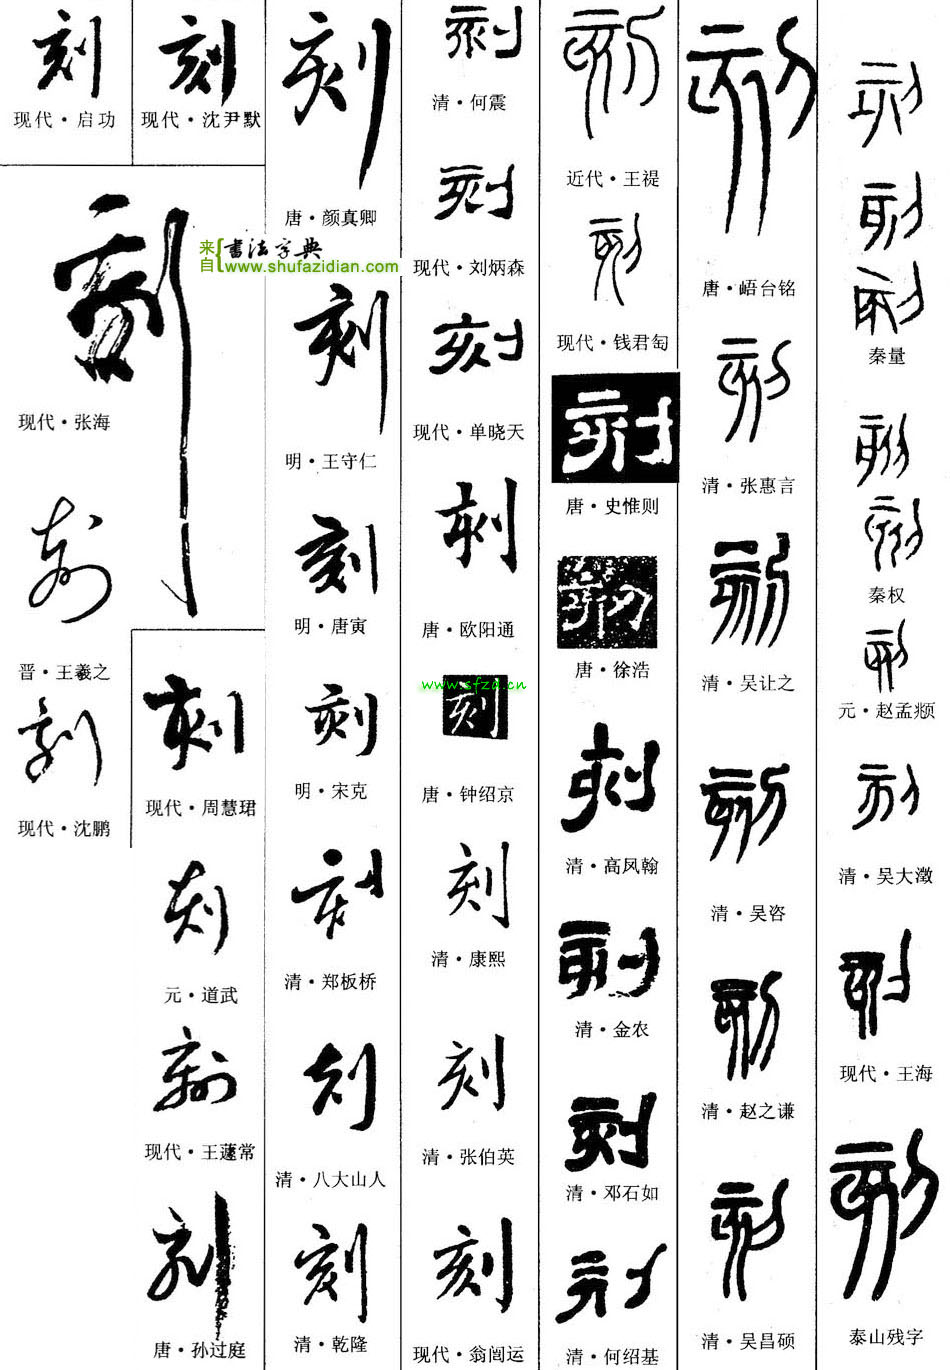 刻
现代·启功
刻
现代·沈尹默
刻
现代·张海
刻
晋·王羲之
刻
现代·沈鹏
刻
现代·周慧珺
刻
元·道武
刻
现代·王蘧常
刻
唐·孙过庭
刻
唐·颜真卿
来自{书法字典
www.shufazidian.com
刻
明·王守仁
刻
明·唐寅
刻
明·宋克
刻
清·郑板桥
刻
清·八大山人
刻
清·乾隆
刻
清·何震
刻
现代·刘炳森
刻
现代·单晓天
刻
唐·欧阳通
www.sfzd.cn
刻
唐·钟绍京
刻
清·康熙
刻
清·张伯英
刻
现代·翁闿运
刻
近代·王禔
刻
现代·钱君匋
刻
唐·史惟则
刻
唐·徐浩
刻
清·高凤翰
刻
清·金农
刻
清·邓石如
刻
清·何绍基
刻
唐·峿台铭
刻
清·张惠言
刻
清·吴让之
刻
清·吴咨
刻
清·赵之谦
刻
清·吴昌硕
刻
刻
刻
秦量
刻
刻
秦权
刻
元·赵孟頫
刻
清·吴大澂
刻
现代·王海
刻
泰山残字